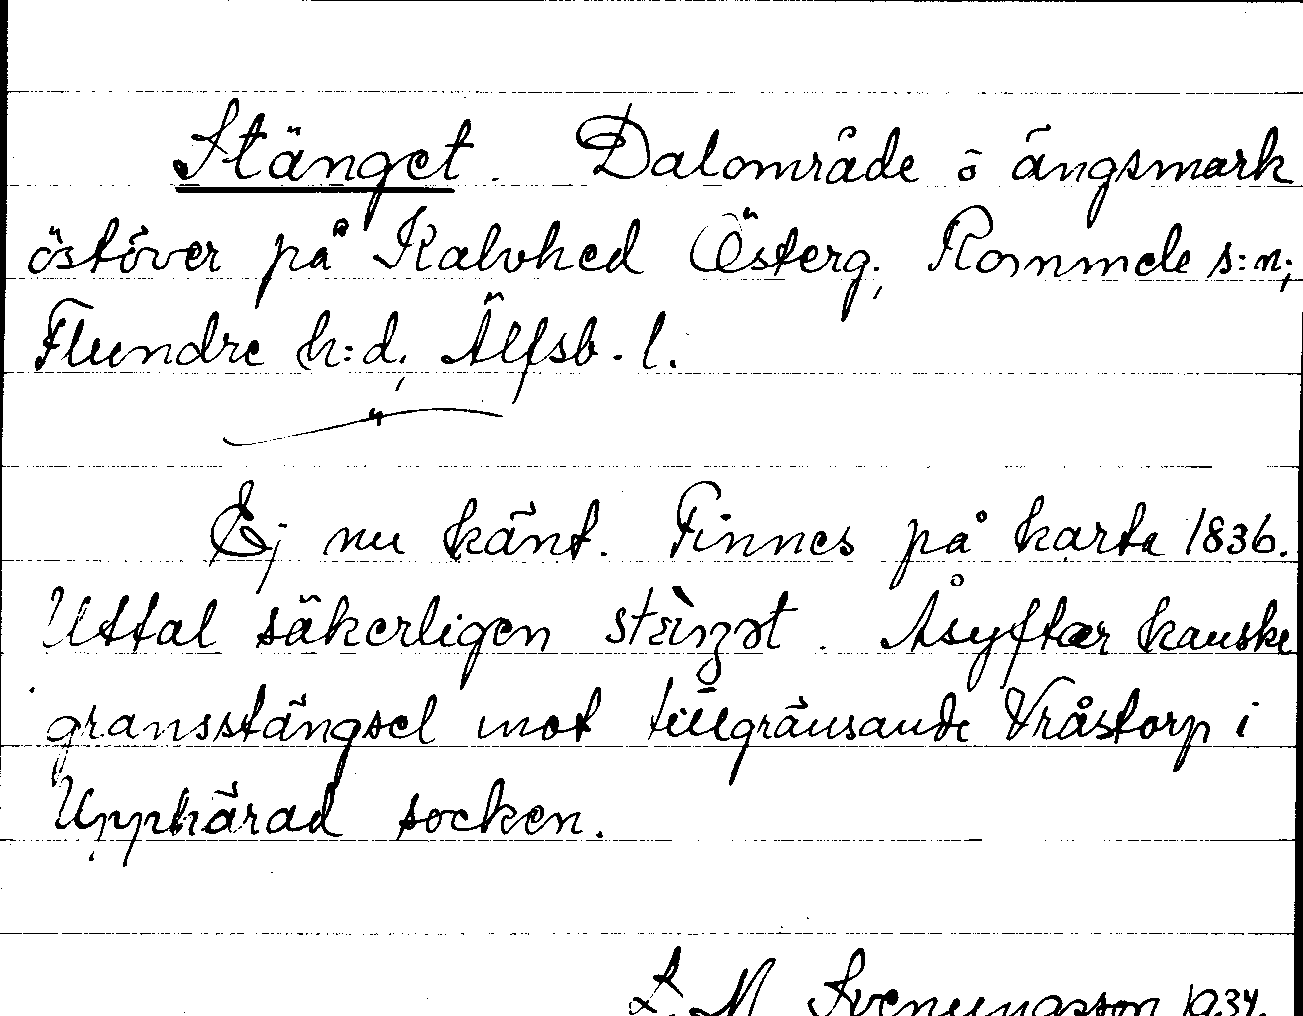 Stänget. Dalområde ö ängsmark
östöver på Kalvhed Österg; Rommele s:n;
Flundre h:d; Älfsb. l.
Ej nu känt. Finnes på karta 1836.
Uttal säkerligen . Åsyftar kanske
gränsstängsel mot tillgränsande Vråstorp i
Upphärad socken.
L. M. Svenungsson 1934.